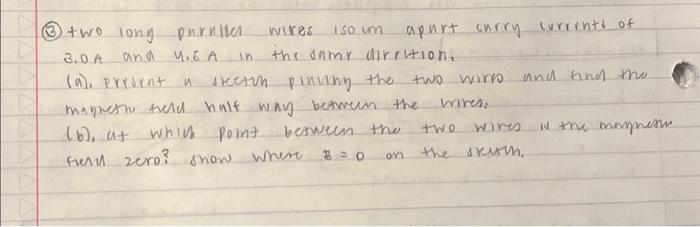 ③ two long parallel wires 150 cm apart carry currents of
3.0A and 4.5A in the same direction.
(a). present a sketch pinving the two wires and find the
magnetic field half way between the wires.
(b). at which point between the two wires is the magnetic
field zero? show where B = 0 on the sketch.